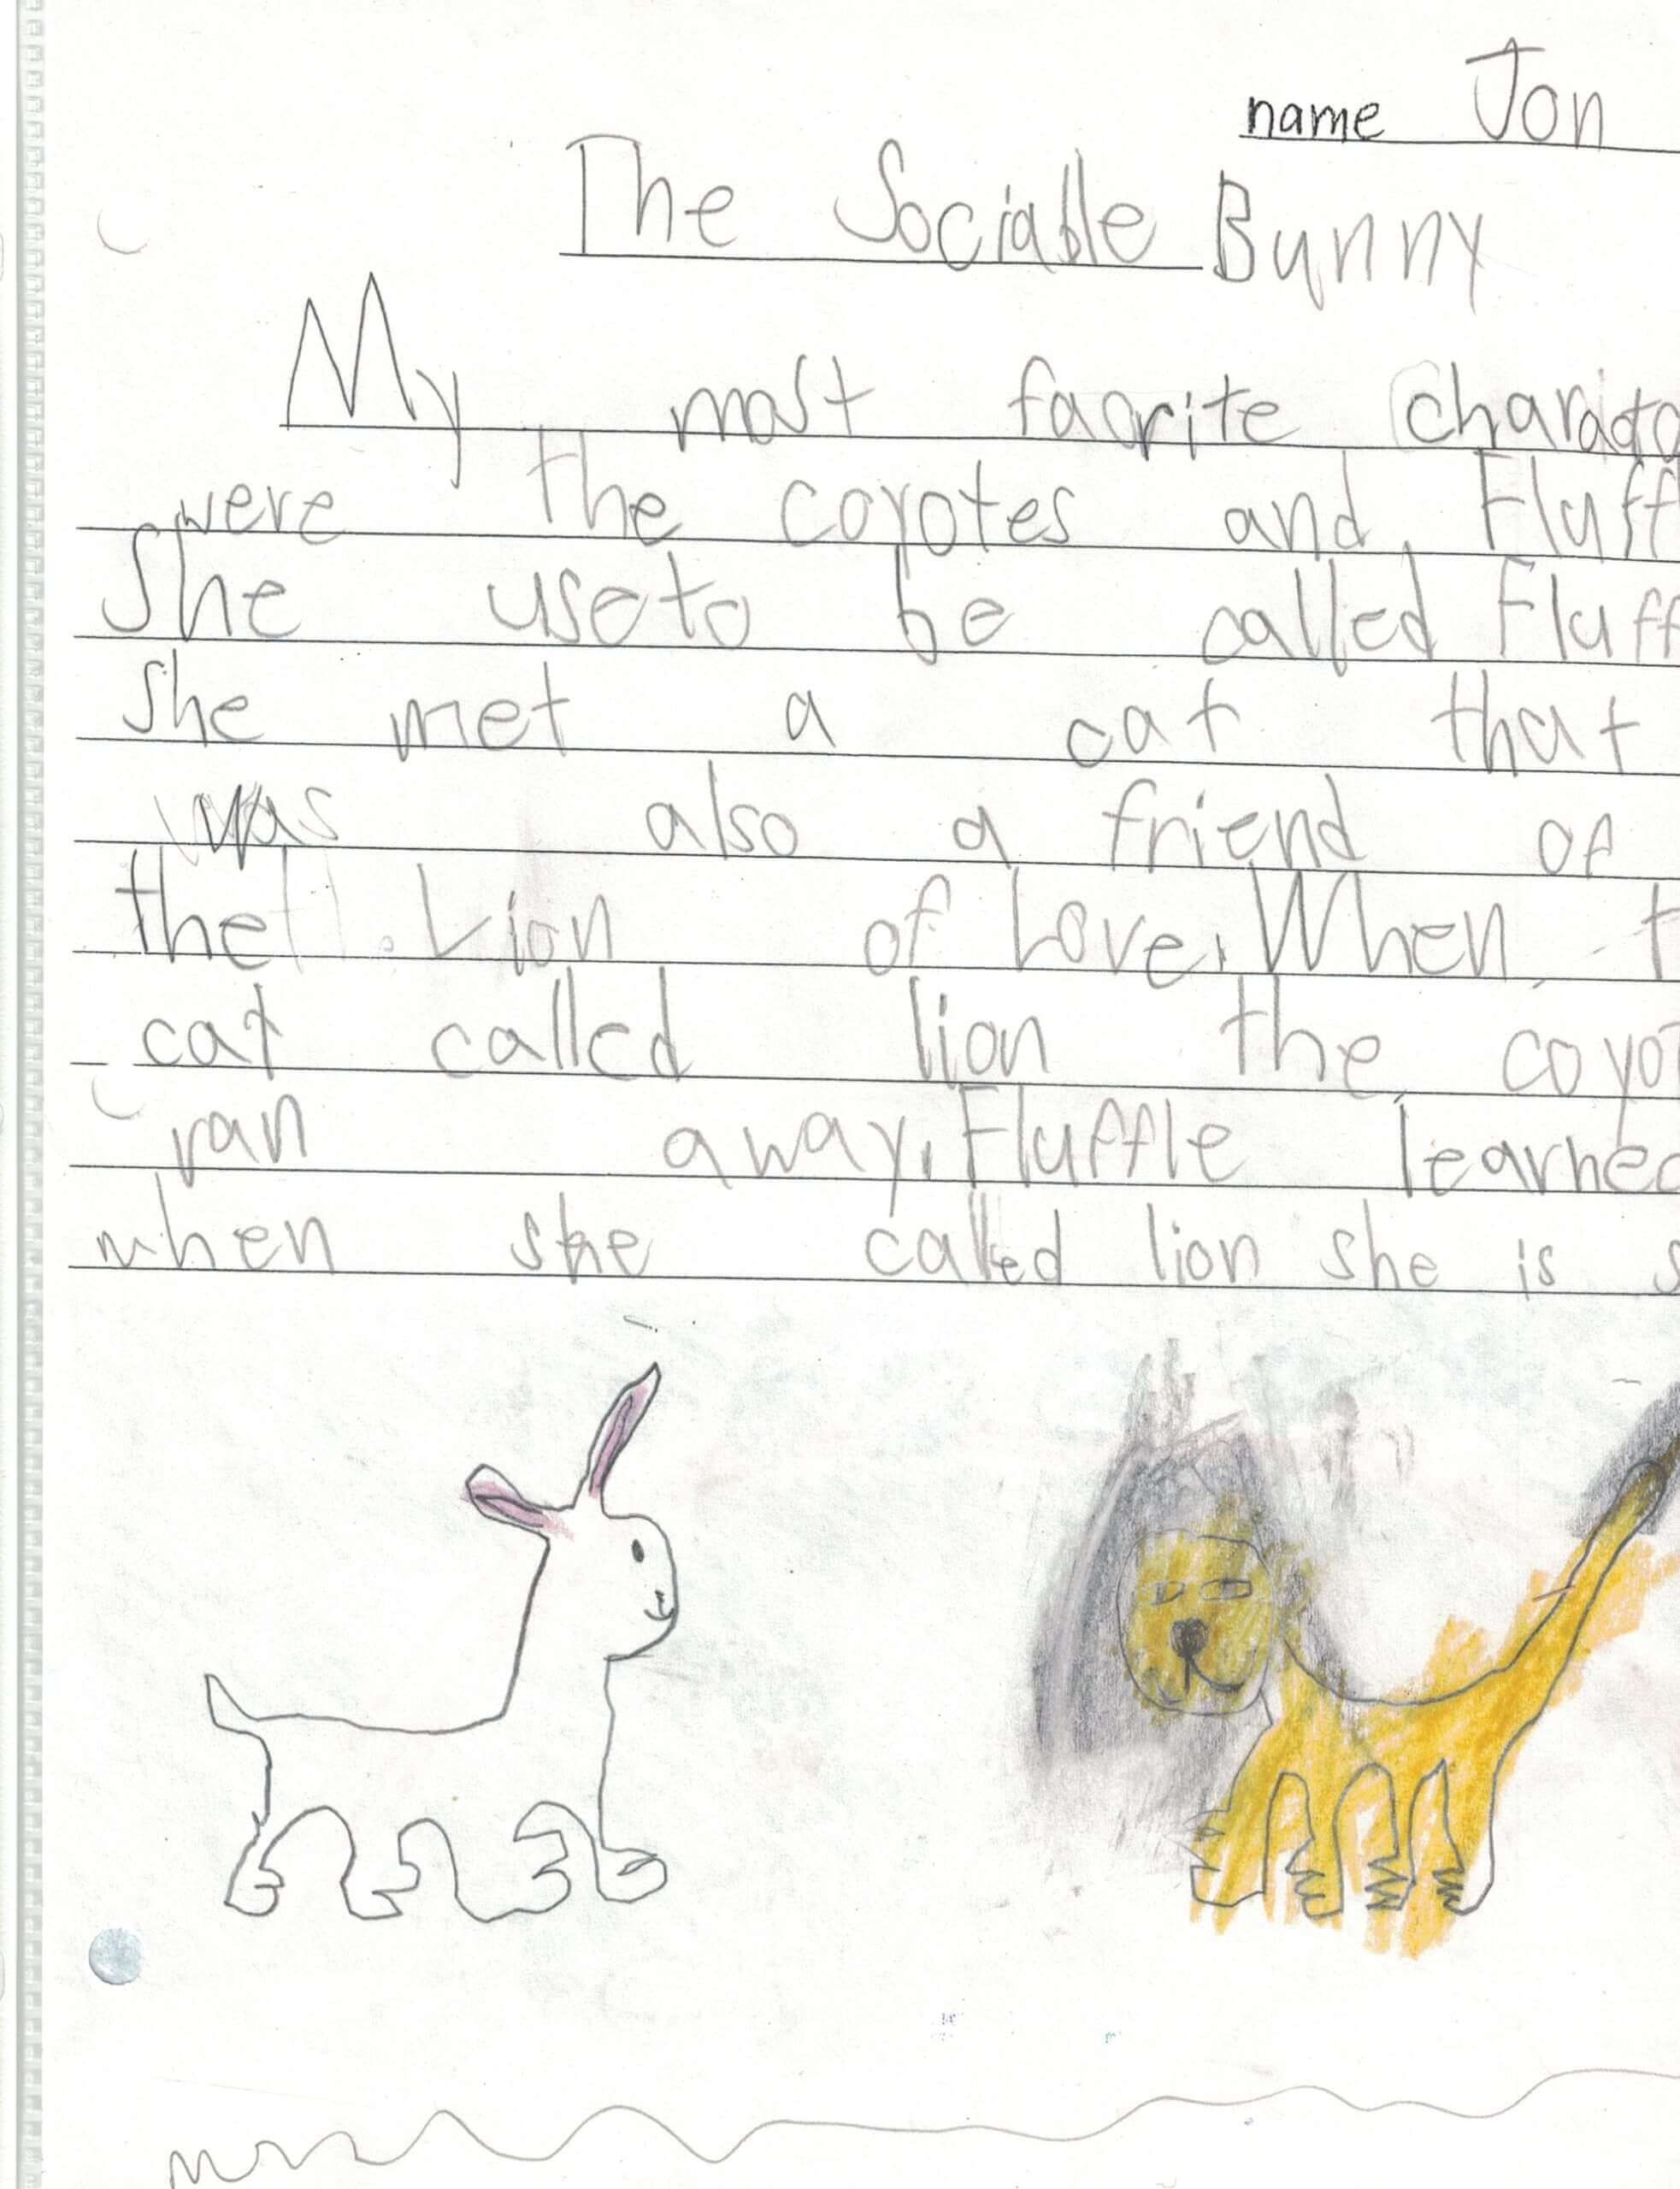 name Jon
The Sociable Bunny
My most faorite
were the coyotes and Fluff
She useto be called Fluff
She met a cat that
was also a friend of
the Lion of Love. When t
cat called lion the coyot
ran away. Fluffle learned
when she called lion she is s